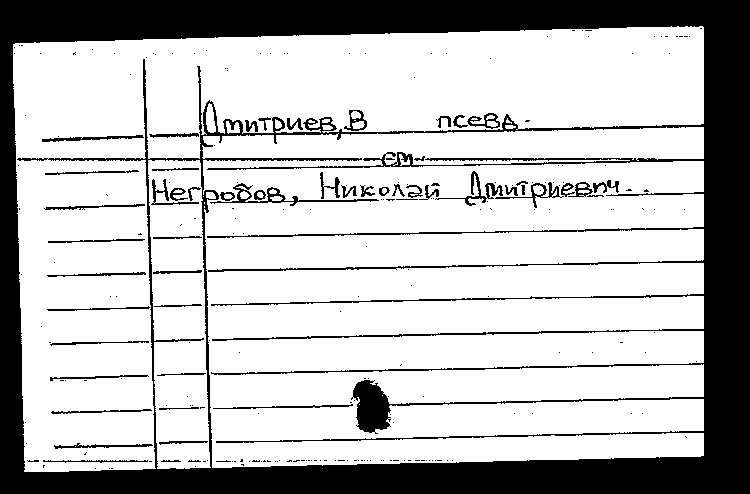 Дмитриев, В псевд.
см.
Негробов, Николай Дмитриевич.